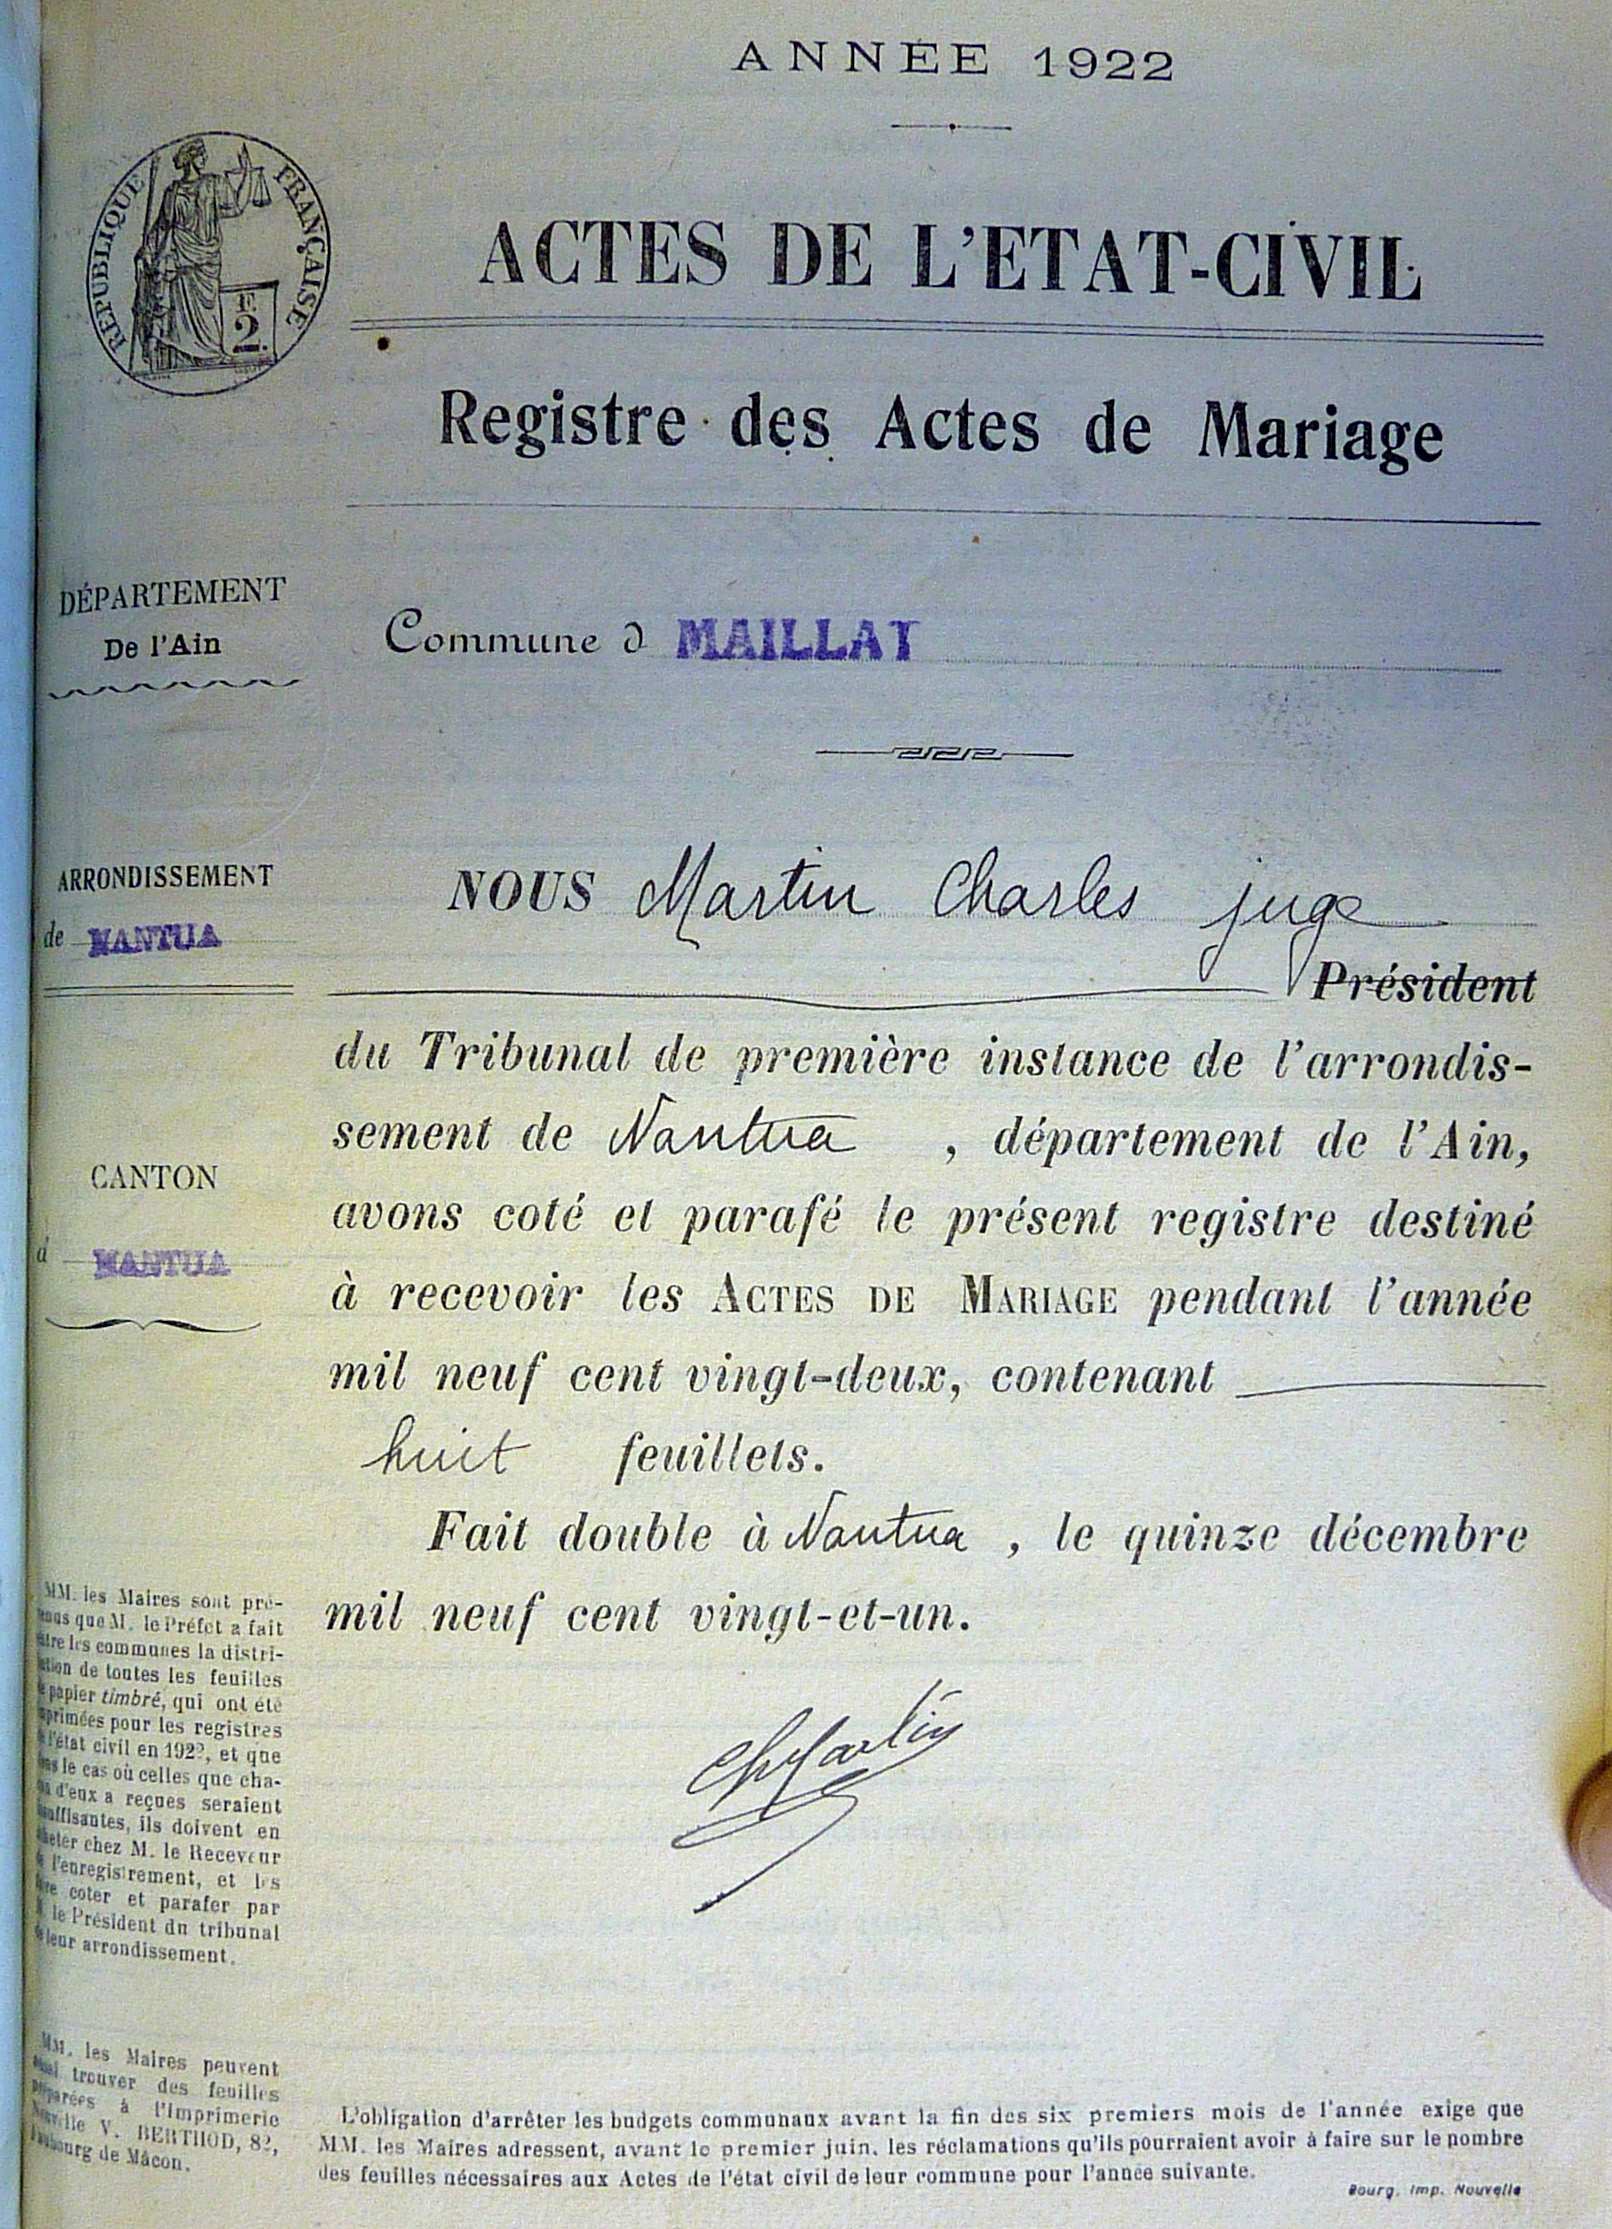 ANNÉE 1922
RÉPUBLIQUE FRANÇAISE
2
ACTES DE L'ETAT-CIVIL
Registre des Actes de Mariage
DÉPARTEMENT
De l'Ain
Commune d MAILLAT
ARRONDISSEMENT
de NANTUA
NOUS Martin Charles juge
Président
du Tribunal de première instance de l'arrondis-
sement de Nantua , département de l'Ain,
CANTON
d NANTUA
avons coté et parafé le présent registre destiné
à recevoir les ACTES DE MARIAGE pendant l'année
mil neuf cent vingt-deux, contenant
huit feuillets.
Fait double à Nantua , le quinze décembre
mil neuf cent vingt-et-un.
Ch Martin
MM. les Maires sont pré-
que M. le Préfet a fait
les communes la distri-
de toutes les feuilles
papier timbré, qui ont été
pour les registres
l'état civil en 1922, et que
le cas où celles que cha-
d'eux a reçues seraient
ils doivent en
chez M. le Receveur
l'enregistrement, et les
coter et parafer par
le Président du tribunal
leur arrondissement.
MM. les Maires peuvent
trouver des feuilles
à l'Imprimerie
V. BERTHOD, 82,
de Mâcon.
L'obligation d'arrêter les budgets communaux avant la fin des six premiers mois de l'année exige que
MM. les Maires adressent, avant le premier juin, les réclamations qu'ils pourraient avoir à faire sur le nombre
des feuilles nécessaires aux Actes de l'état civil de leur commune pour l'année suivante.
Bourg, Imp. Nouvelle